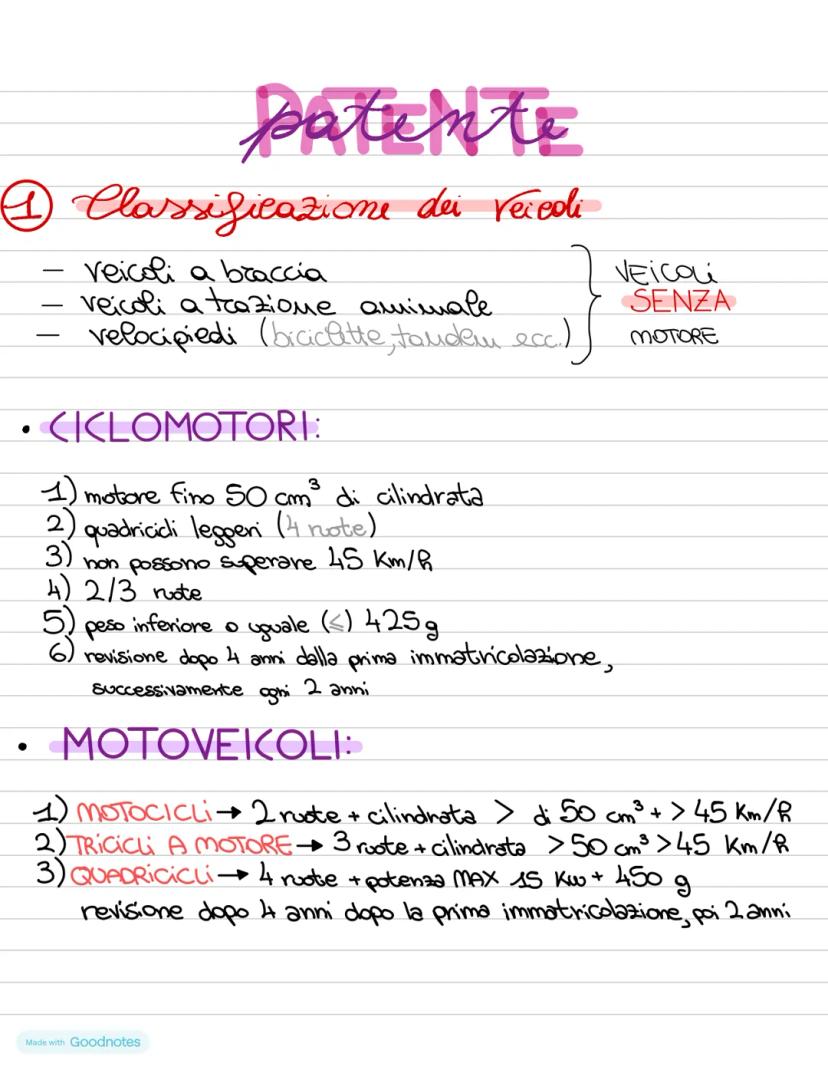 PATENTE
patente
1 Classificazione dei veicoli
- veicoli a braccia
- veicoli a trazione animale
- velocipiedi (biciclette, tandem ecc.)
VEICOLI
SENZA
MOTORE
• CICLOMOTORI:
1) motore fino 50 cm³ di cilindrata
2) quadricicli leggeri (4 ruote)
3) non possono superare 45 Km/h
4) 2/3 ruote
5) peso inferiore o uguale (≤) 425g
6) revisione dopo 4 anni dalla prima immatricolazione,
successivamente ogni 2 anni
• MOTOVEICOLI:
1) MOTOCICLI → 2 ruote + cilindrata > di 50 cm³ + > 45 Km/h
2) TRICICLI A MOTORE → 3 ruote + cilindrata > 50 cm³ > 45 Km/h
3) QUADRICICLI → 4 ruote + potenza MAX 15 Kw + 450 g
revisione dopo 4 anni dopo la prima immatricolazione, poi 2 anni
Made with Goodnotes